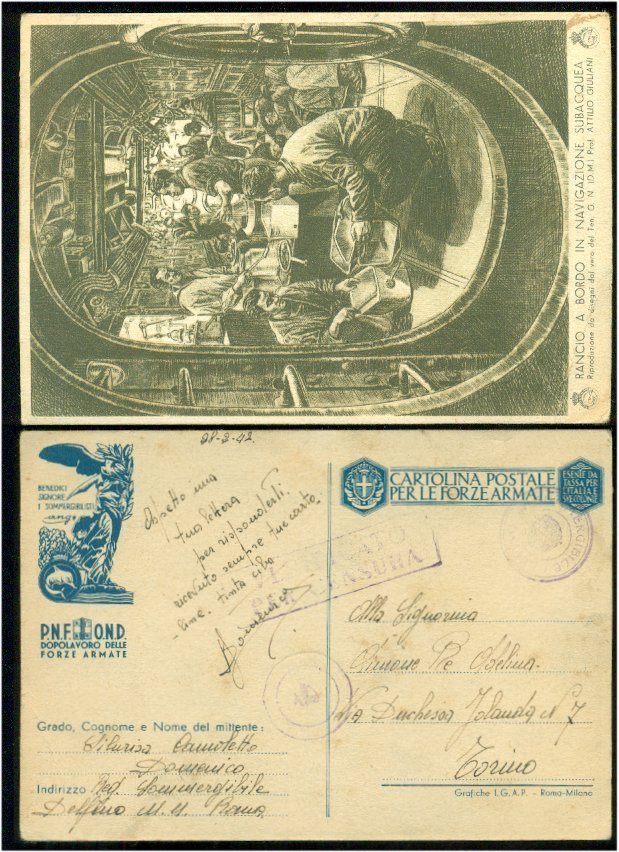 RANCIO A BORDO IN NAVIGAZIONE SUBACQUEA
Riproduzione da disegni dal vero del Ten. G. N. (D.M.) Prof. ATTILIO GIULIANI
28-2-42.
BENEDICI
SIGNORE
I SOMMERGIBILISTI
P.N.F. O.N.D.
DOPOLAVORO DELLE
FORZE ARMATE
Aspetto una
tua lettera
per risponderti.
ricevuto sempre tue carto
-line.
Domenico
CARTOLINA POSTALE
PER LE FORZE ARMATE
ESENTE DA
TASSA PER
L'ITALIA E
SUE COLONIE
CENSURA
Alla Signorina
Via Duchessa Jolanda N 7
Torino
Grado, Cognome e Nome del mittente:
Domenico
Indirizzo Reg. Sommergibile
Delfino M. M. Roma
Grafiche I.G.A.P. - Roma-Milano